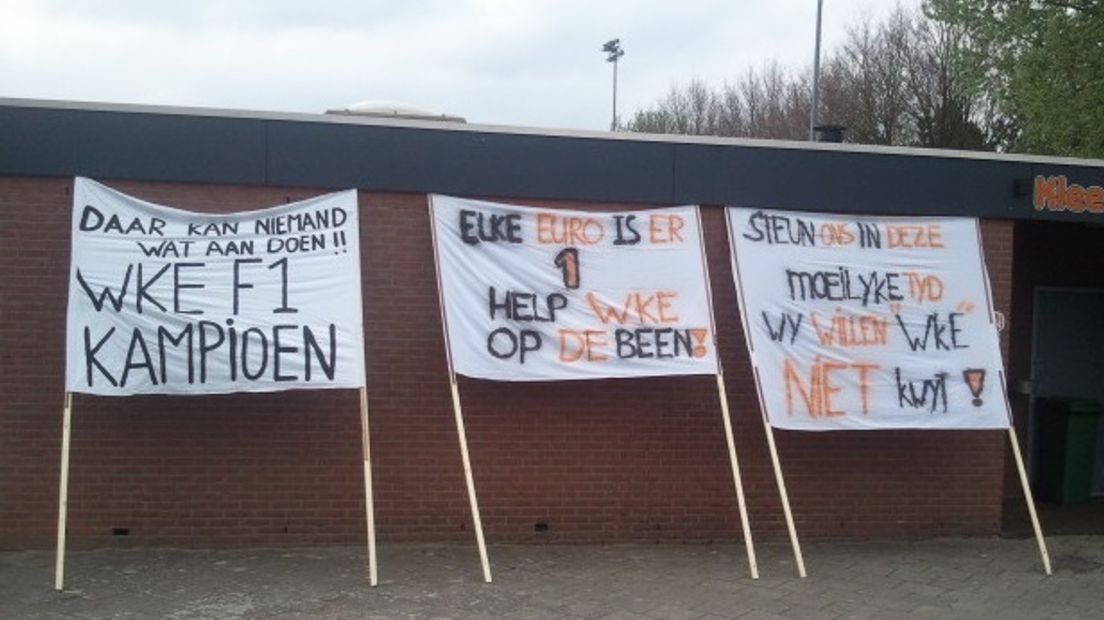 DAAR KAN NIEMAND
WAT AAN DOEN!!
WKE F1
KAMPiOEN
ELKE EURO IS ER
1
HELP WKE
OP DE BEEN!
STEUN ONS IN DEZE
MOEILYKE TYD
WY WILLEN "WKE"
NIET KWYT!
Klee